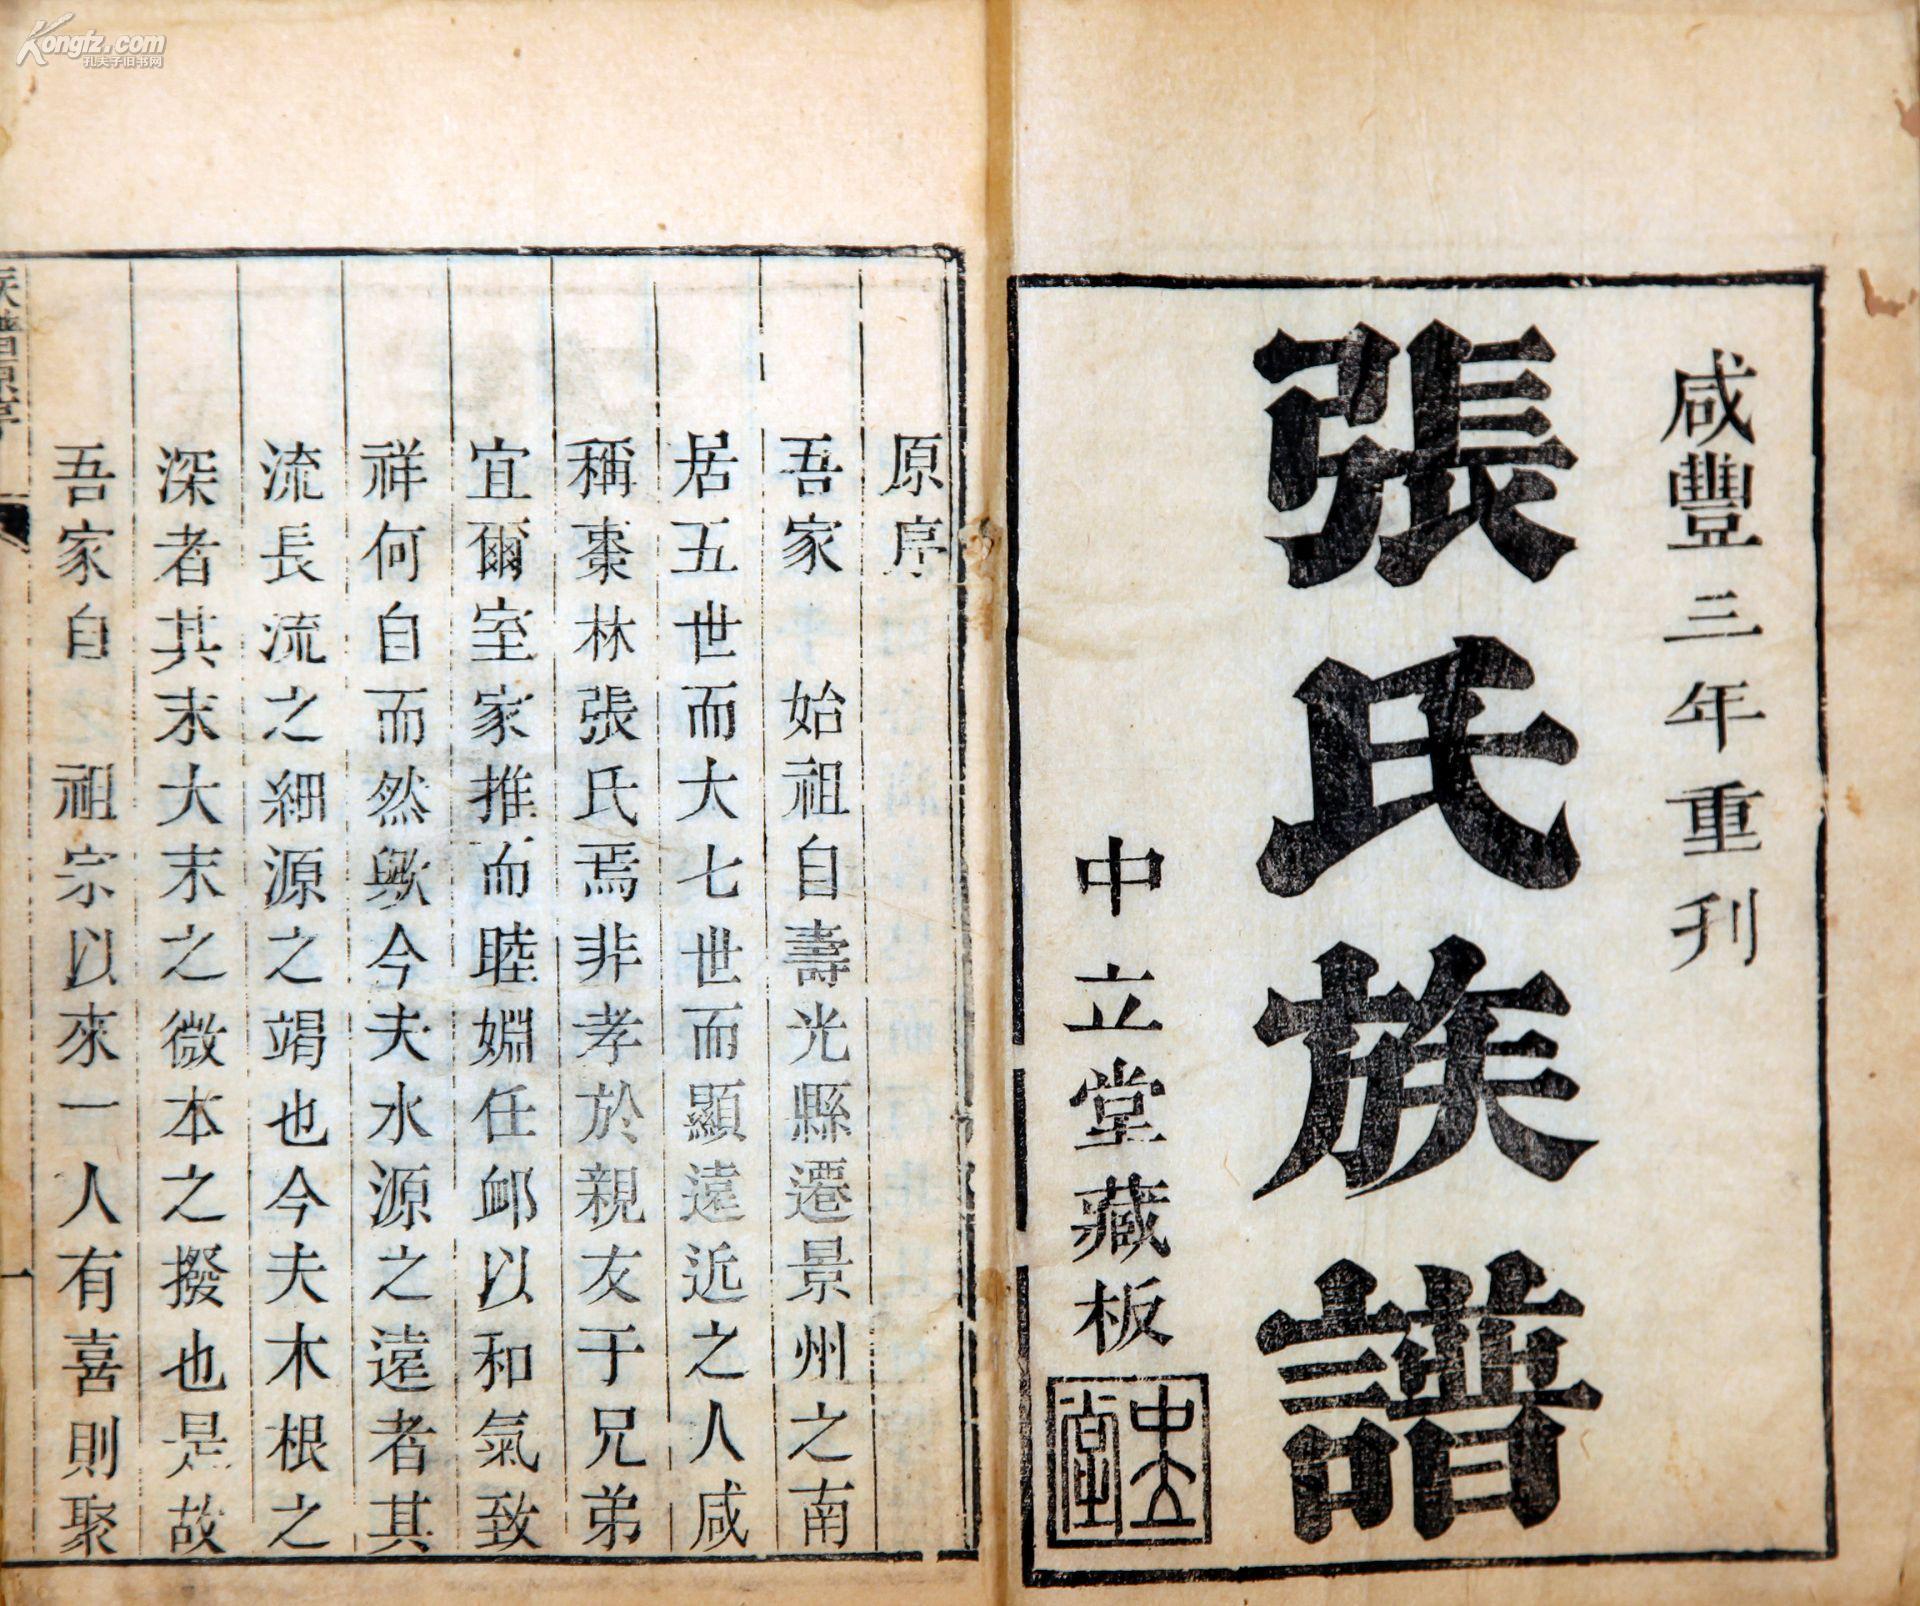 Kongfz.com
孔夫子旧书网
咸豐三年重刊
張氏族譜
中立堂藏板
中立堂
原序
吾家 始祖自壽光縣遷景州之南
居五世而大七世而顯遠近之人咸
稱棗林張氏焉非孝於親友于兄弟
宜爾室家推而睦婣任卹以和氣致
祥何自而然歟今夫水源之遠者其
流長流之細源之竭也今夫木根之
深者其末大末之微本之撥也是故
吾家自 祖宗以來一人有喜則聚
族譜原序
一